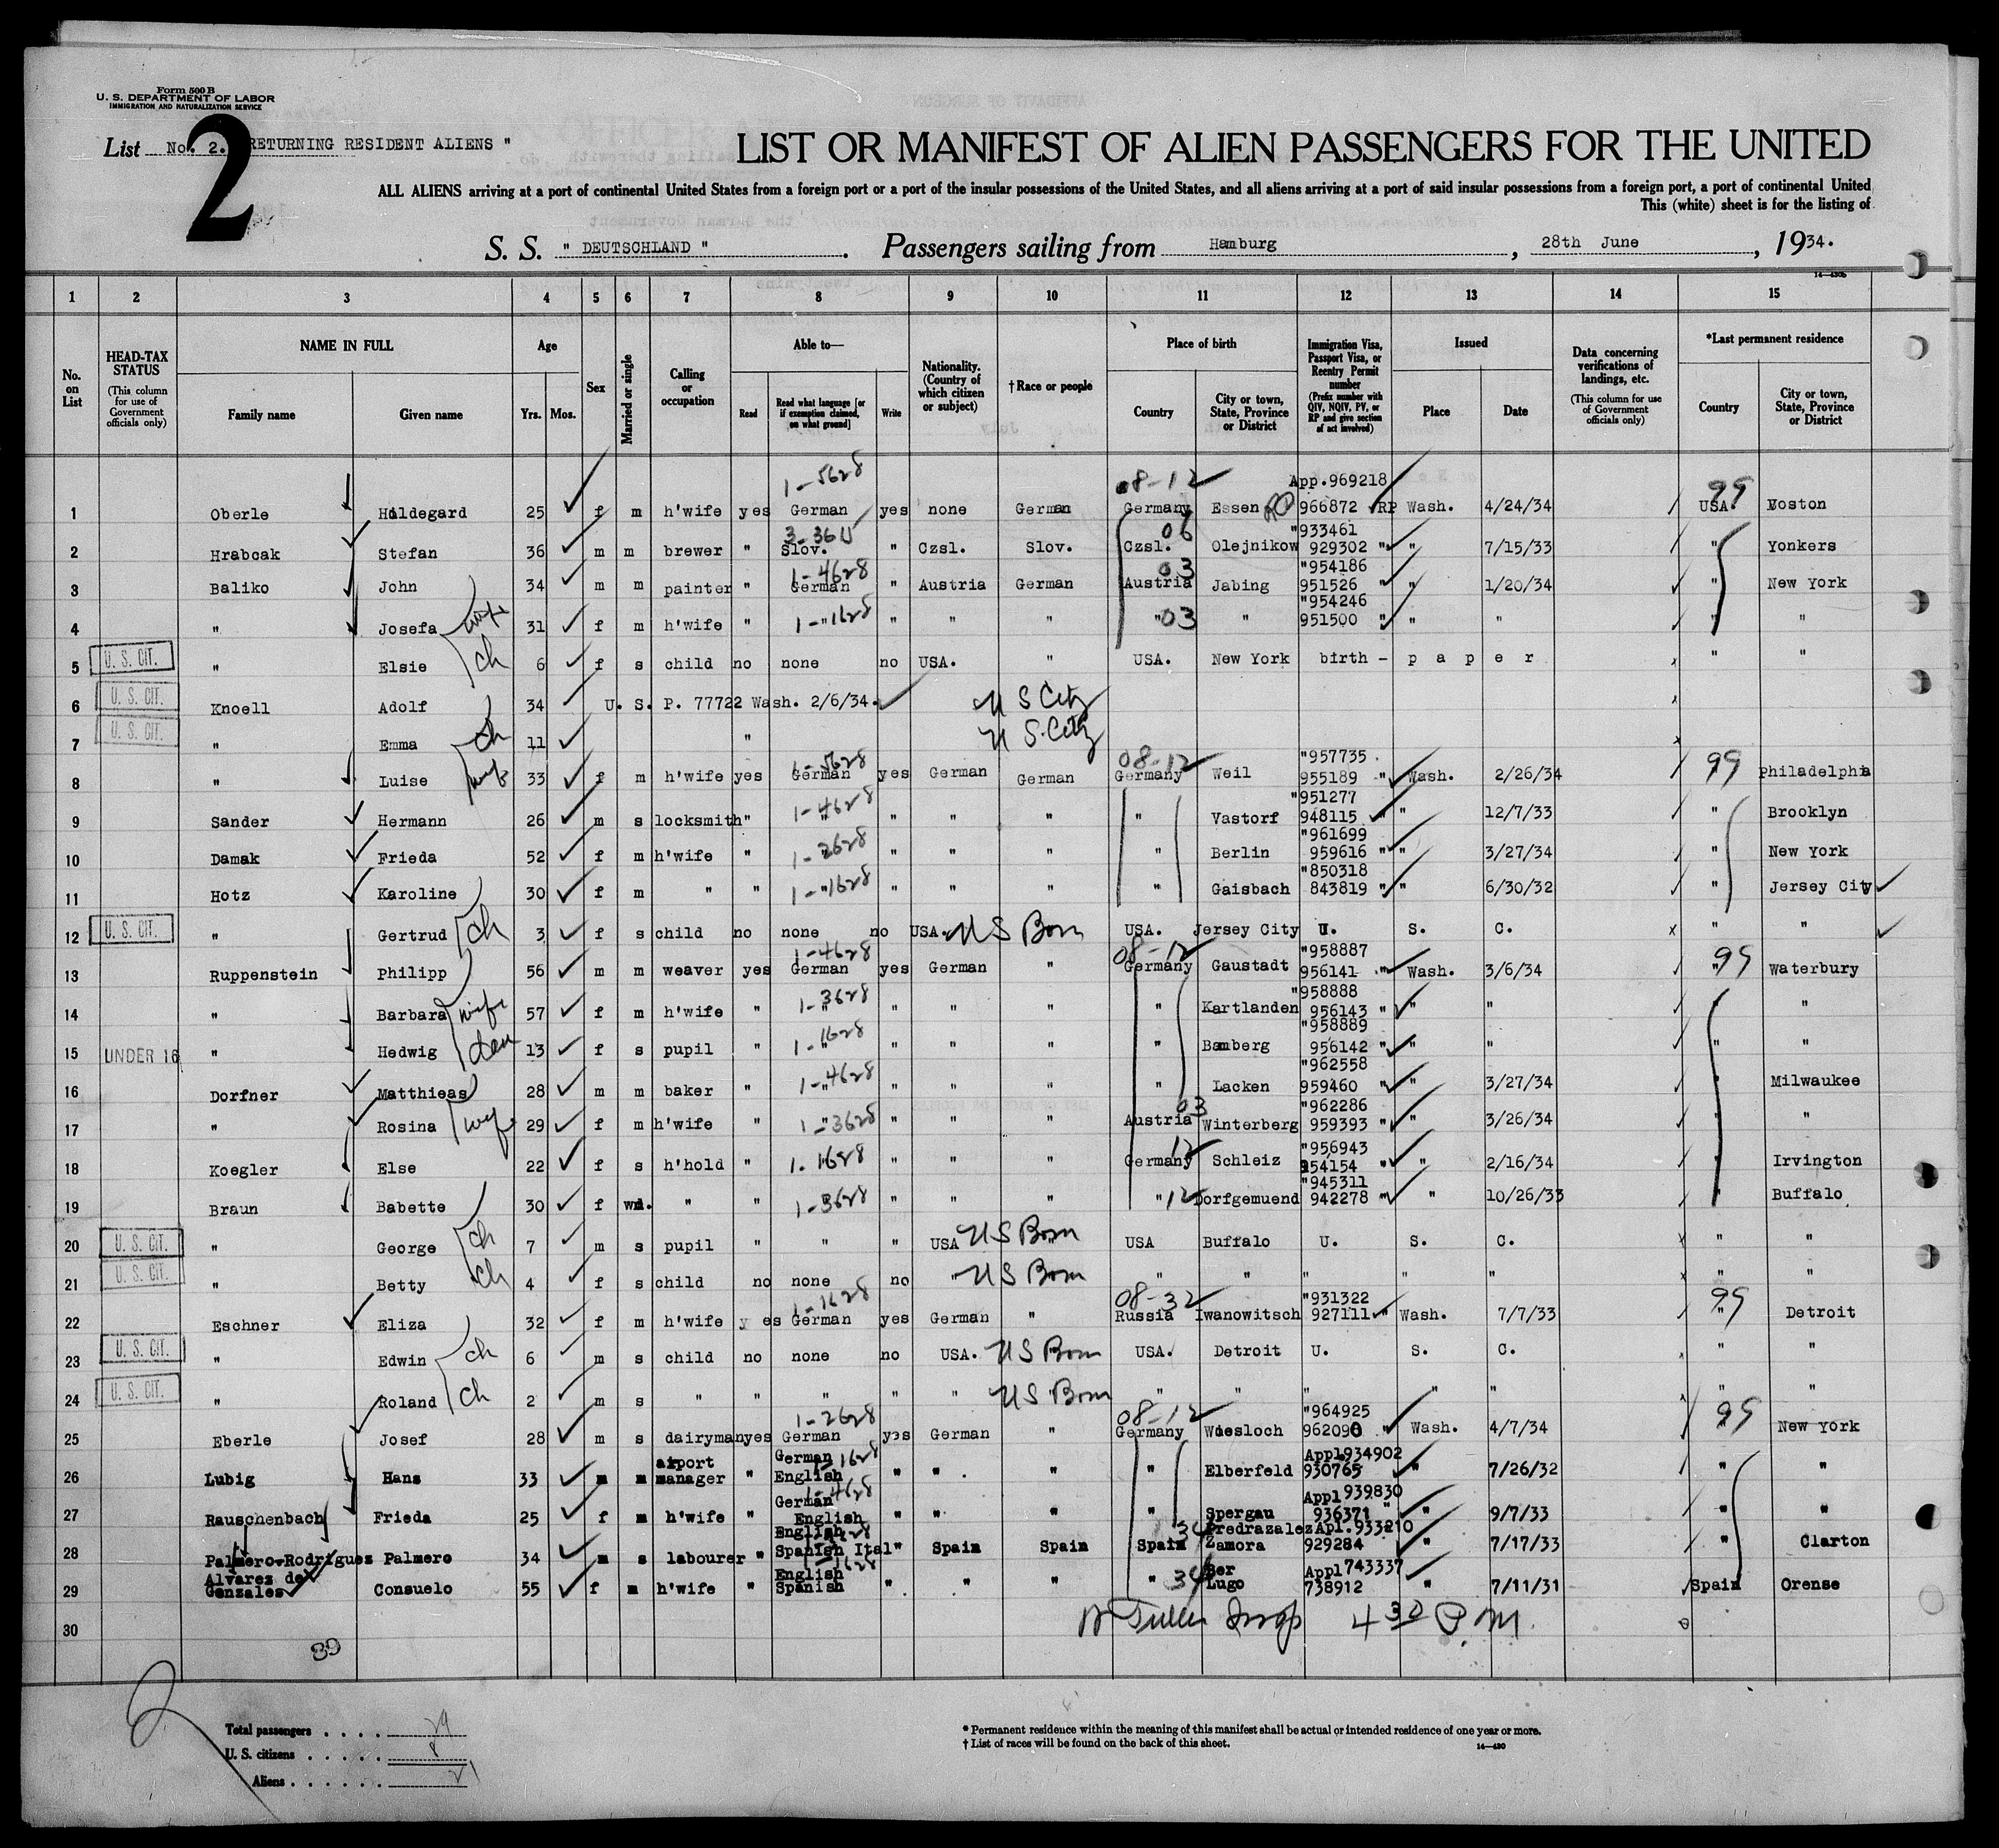 Form 500 B
U. S. DEPARTMENT OF LABOR
IMMIGRATION AND NATURALIZATION SERVICE
2
List No. 2. RETURNING RESIDENT ALIENS "
LIST OR MANIFEST OF ALIEN PASSENGERS FOR THE UNITED
ALL ALIENS arriving at a port of continental United States from a foreign port or a port of the insular possessions of the United States, and all aliens arriving at a port of said insular possessions from a foreign port, a port of continental United
This (white) sheet is for the listing of
S. S. " DEUTSCHLAND " . Passengers sailing from Hamburg , 28th June , 1934.
14—430b
1 2 3 4 5 6 7 8 9 10 11 12 13 14 15
No. on List
HEAD-TAX STATUS (This column for use of Government officials only)
NAME IN FULL Family name Given name
Age Yrs. Mos.
Sex
Married or single
Calling or occupation
Able to— Read Read what language [or if exemption claimed, on what ground] Write
Nationality. (Country of which citizen or subject)
† Race or people
Place of birth Country City or town, State, Province or District
Immigration Visa, Passport Visa, or Reentry Permit number (Prefix number with QIV, NQIV, PV, or RP and give section of act involved)
Issued Place Date
Data concerning verifications of landings, etc. (This column for use of Government officials only)
*Last permanent residence Country City or town, State, Province or District
1-5628 08-12 App.969218 99
1 Oberle Hildegard 25 f m h'wife yes German yes none German Germany Essen 966872 RP Wash. 4/24/34 USA. Boston
3-36 06 "933461
2 Hrabcak Stefan 36 m m brewer " Slov. " Czsl. Slov. Czsl. Olejnikow 929302 " " 7/15/33 " Yonkers
1-4628 03 "954186
3 Baliko John 34 m m painter " German " Austria German Austria Jabing 951526 " " 1/20/34 " New York
wife "954246
4 " Josefa 31 f m h'wife " 1-"1628 " " " "03 " 951500 " " " " "
5 U. S. CIT. " Elsie ch 6 f s child no none no USA. " USA. New York birth - p a p e r " "
6 U. S. CIT. Knoell Adolf 34 U. S. P. 77722 Wash. 2/6/34. U S City
7 U. S. CIT. " Emma ch 11 " U S. City
1-5628 08-12 "957735
8 " Luise wife 33 f m h'wife yes German yes German German Germany Weil 955189 " Wash. 2/26/34 99 Philadelphia
1-4628 "951277
9 Sander Hermann 26 m s locksmith " " " " " " Vastorf 948115 " " 12/7/33 " Brooklyn
1-2628 "961699
10 Damak Frieda 52 f m h'wife " " " " " " Berlin 959616 " " 3/27/34 " New York
"850318
11 Hotz Karoline 30 f m " " 1-"1628 " " " " Gaisbach 843819 " " 6/30/32 " Jersey City
12 U. S. CIT. " Gertrud ch 3 f s child no none no USA. U S Born USA. Jersey City U. S. C. " "
1-4628 08-12 "958887
13 Ruppenstein Philipp 56 m m weaver yes German yes German " Germany Gaustadt 956141 " Wash. 3/6/34 " 99 Waterbury
1-3628 "958888
14 " Barbara wife 57 f m h'wife " " " " " " Kartlanden 956143 " " " " "
1-1628 "958889
15 UNDER 16 " Hedwig dau 13 f s pupil " " " " " " Bamberg 956142 " " " " "
1-4628 "962558
16 Dorfner Matthieas 28 m m baker " " " " " " Lacken 959460 " " 3/27/34 " Milwaukee
03 "962286
17 " Rosina wife 29 f m h'wife " 1-"3628 " " " Austria Winterberg 959393 " " 3/26/34 " "
12 "956943
18 Koegler Else 22 f s h'hold " 1.1628 " " " Germany Schleiz 954154 " " 2/16/34 " Irvington
"945311
19 Braun Babette 30 f wd. " " 1-3628 " " " " 12 Dorfgemuend 942278 " " 10/26/33 " Buffalo
20 U. S. CIT. " George ch 7 m s pupil " " " USA U S Born USA Buffalo U. S. C. " "
21 U. S. CIT. " Betty ch 4 f s child no none no " U S Born " " " " " " "
1-1628 08-32 "931322
22 Eschner Eliza 32 f m h'wife yes German yes German " Russia Iwanowitsch 927111 " Wash. 7/7/33 " 99 Detroit
23 U. S. CIT. " Edwin ch 6 m s child no none no USA. U S Born USA. Detroit U. S. C. " "
24 U. S. CIT. " Roland ch 2 m s " " " " " U S Born " " " " " " "
1-2628 08-12 "964925
25 Eberle Josef 28 m s dairyman yes German yes German " Germany Wiesloch 962090 " Wash. 4/7/34 " 99 New York
airport German 1-1628 Appl934902
26 Lubig Hans 33 m m manager " English " " " " Elberfeld 930765 " " 7/26/32 " "
German 1-4628 Appl939830
27 Rauschenbach Frieda 25 f m h'wife " English " " " " Spergau 936371 " " 9/7/33 " "
English 34 Predrazalez Apl.933210
28 Palmero-Rodriguez Palmero 34 m s labourer " Spanish Ital " Spain Spain Spain Zamora 929284 " " 7/17/33 " Clarton
Alvarez de English 1628 Ber Appl743337
29 Gonzales Consuelo 55 f m h'wife " Spanish " " " " 34 Lugo 738912 " 7/11/31 Spain Orense
30 Insp 4 30 P. M.
89
Total passengers . . . . 29
U. S. citizens . . . . . 8
Aliens . . . . . . 21
* Permanent residence within the meaning of this manifest shall be actual or intended residence of one year or more.
† List of races will be found on the back of this sheet.
14—430